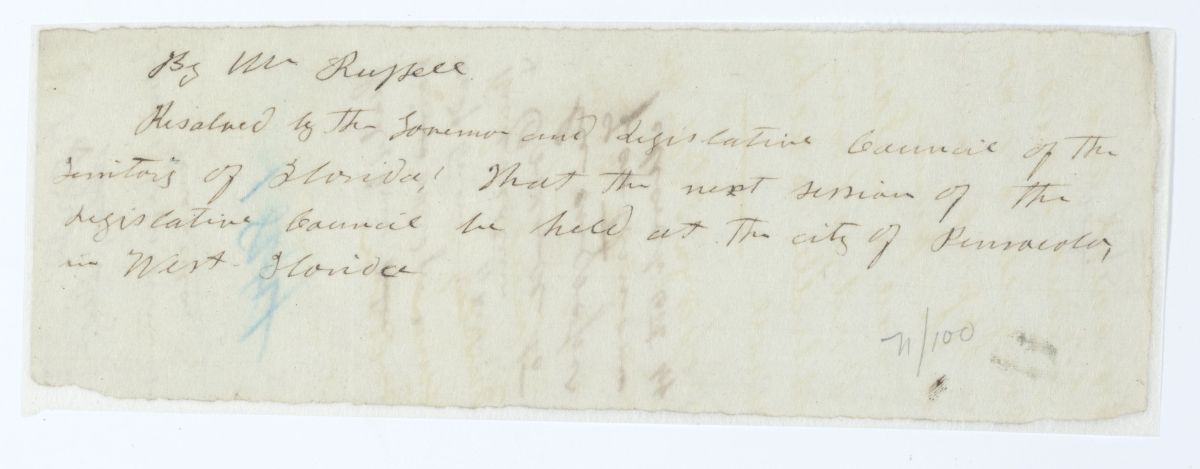 By Mr Russell.
Resolved by the Governor and Legislative Council of the
Territory of Florida, That the next session of the
Legislative Council be held at the city of Pensacola,
in West Florida
n/100